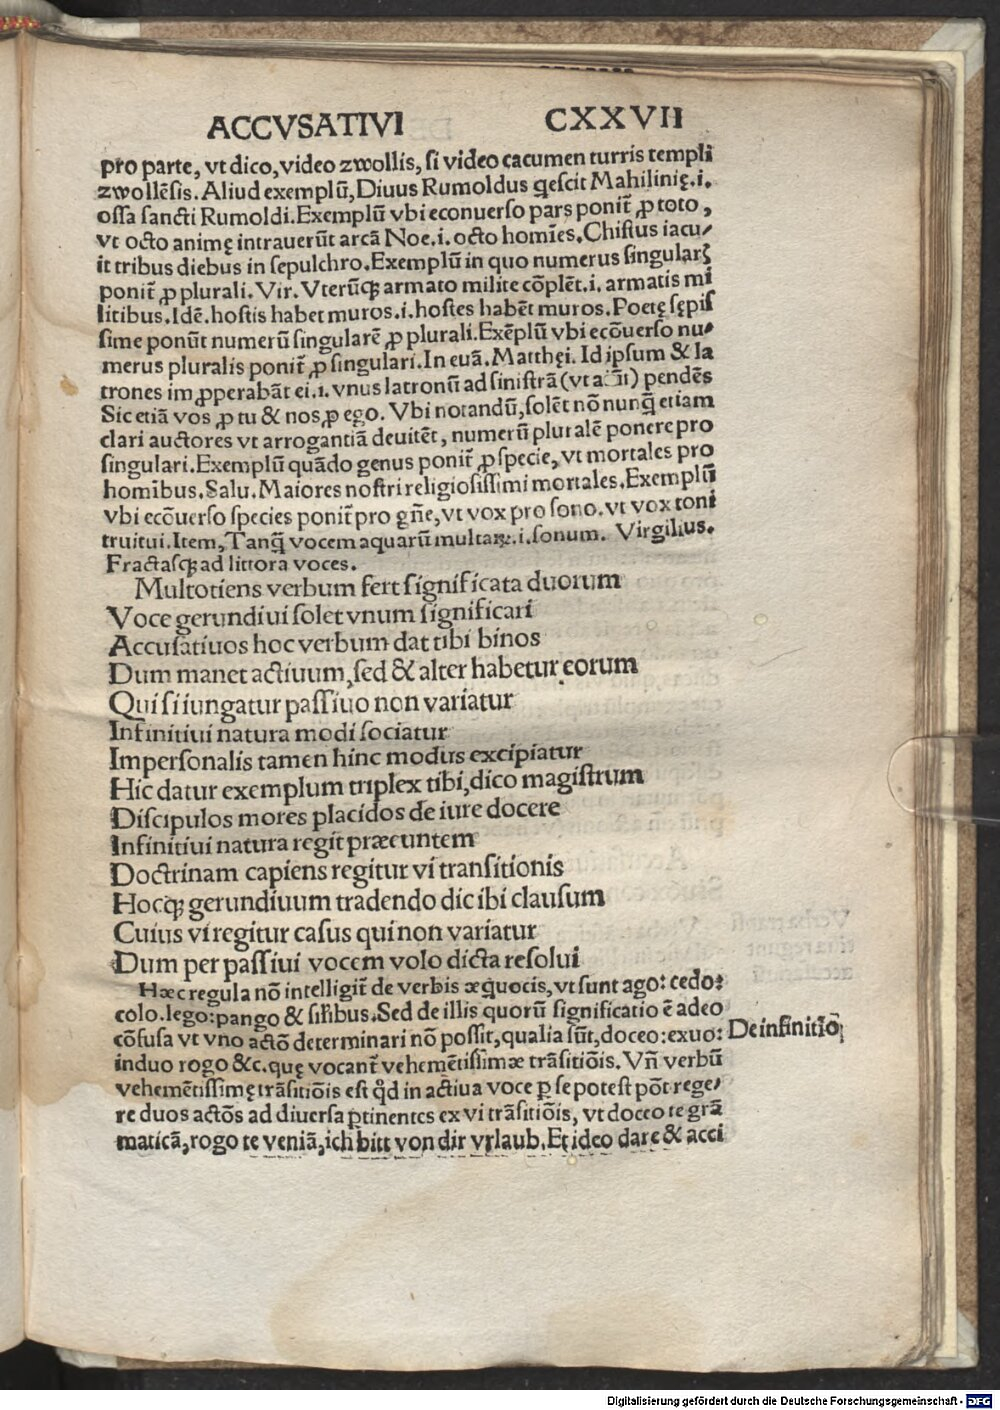 ACCVSATIVI CXXVII
pro parte, vt dico, video zwollis, si video cacumen turris templi
zwollẽsis. Aliud exemplũ, Diuus Rumoldus q̃escit Mahilinię .i.
ossa sancti Rumoldi. Exemplũ vbi econuerso pars ponit̃ ꝓ toto,
vt octo animę intrauerũt arcã Noe .i. octo homĩes. Christus iacu/
it tribus diebus in sepulchro. Exemplũ in quo numerus singularꝭ
ponit̃ ꝓ plurali. Vir. Vterũq̃ armato milite cõplẽt .i. armatis mi
litibus. Idẽ. hostis habet muros .i. hostes habẽt muros. Poetę sępis
sime ponũt numerũ singularẽ ꝓ plurali. Exẽplũ vbi ecõuerso nu/
merus pluralis ponit̃ ꝓ singulari. In euã. Matthęi. Id ipsum & la
trones imꝓperabãt ei .i. vnus latronũ ad sinistrã (vt a) pendẽs
Sic etiã vos ꝓ tu & nos ꝓ ego. Vbi notandũ, solẽt nõ nunq̃ etiam
clari auctores vt arrogantiã deuitẽt, numerũ pluralẽ ponere pro
singulari. Exemplũ quãdo genus ponit̃ ꝓ specie, vt mortales pro
hominibus. Salu. Maiores nostri religiosissimi mortales. Exemplũ
vbi ecõuerso species ponit̃ pro gñe, vt vox pro sono. vt vox toni
truitui. Item, Tanq̃ vocem aquarũ multaꝝ .i. sonum. Virgilius.
Fractasq̃ ad littora voces.
Multotiens verbum fert significata duorum
Voce gerundiui solet vnum significari
Accusatiuos hoc verbum dat tibi binos
Dum manet actiuum, sed & alter habetur eorum
Qui si iungatur passiuo non variatur
Infinitiui natura modi sociatur
Impersonalis tamen hinc modus excipiatur
Hic datur exemplum triplex tibi, dico magistrum
Discipulos mores placidos de iure docere
Infinitiui natura regit præeuntem
Doctrinam capiens regitur vi transitionis
Hocq̃ gerundiuum tradendo dic ibi clausum
Cuius vi regitur casus qui non variatur
Dum per passiui vocem volo dicta resolui
Hæc regula nõ intelligit̃ de verbis æq̃uocis, vt sunt ago: cedo:
colo. lego: pango & sil̃ibus. Sed de illis quorũ significatio ẽ adeo
cõfusa vt vno actõ determinari nõ possit, qualia sũt, doceo: exuo:
induo rogo &c. quę vocant̃ vehemẽtissimæ trãsitiõis. Vñ verbũ
vehemẽtissimę trãsitiõis est q̃d in actiua voce ꝑ se potest põt rege/
re duos actõs ad diuersa ꝑtinentes ex vi trãsitiõis, vt doceo te grã
maticã, rogo te veniã, ich bitt von dir vrlaub. Et ideo dare & acci
De infinitiõ
Digitalisierung gefördert durch die Deutsche Forschungsgemeinschaft - DFG